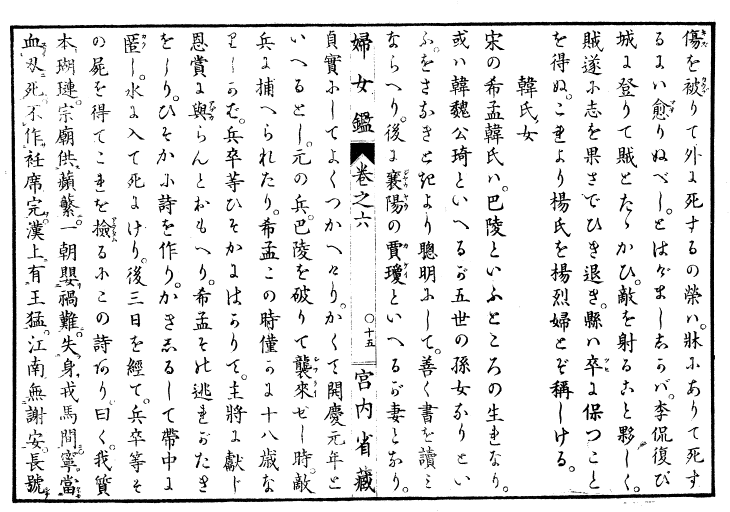 傷を被りて外に死するの榮ハ。牀にありて死す
るにハ愈りぬべし。とはげましゝかバ。李侃復び
城に登りて賊とたゝかひ。敵を射ること夥しく。
賊遂に志を果さでひき退き。縣ハ卒に保つこと
を得ぬ。これより楊氏を楊烈婦とぞ稱しける。
韓氏女
宋の希孟韓氏ハ。巴陵といふところの生れなり。
或ハ韓魏公琦といへるが五世の孫女なりとい
ふ。をさなきときより聰明にして。善く書を讀み
ならへり。後に襄陽の賈瓊といへるが妻となり。
婦女鑑 卷之六 〇十五 宮内省藏
貞實にしてよくつかへたり。かくて開慶元年と
いへるとし。元の兵。巴陵を破りて襲來せし時。敵
兵に捕へられたり。希孟この時僅かに十八歳な
りしかど。兵卒等ひそかにはかりて。主將に獻じ
恩賞に與らんとおもへり。希孟その逃れがたき
をしり。ひそかに詩を作り。かきしるして帶中に
匿し。水に入て死にけり。後三日を經て。兵卒等そ
の屍を得てこれを撿るにこの詩あり曰く。我質
本瑚璉。宗廟供蘋蘩。一朝嬰禍難。失身戎馬間。寧當
血刃死。不作衽席完。漢上有王猛。江南無謝安。長號